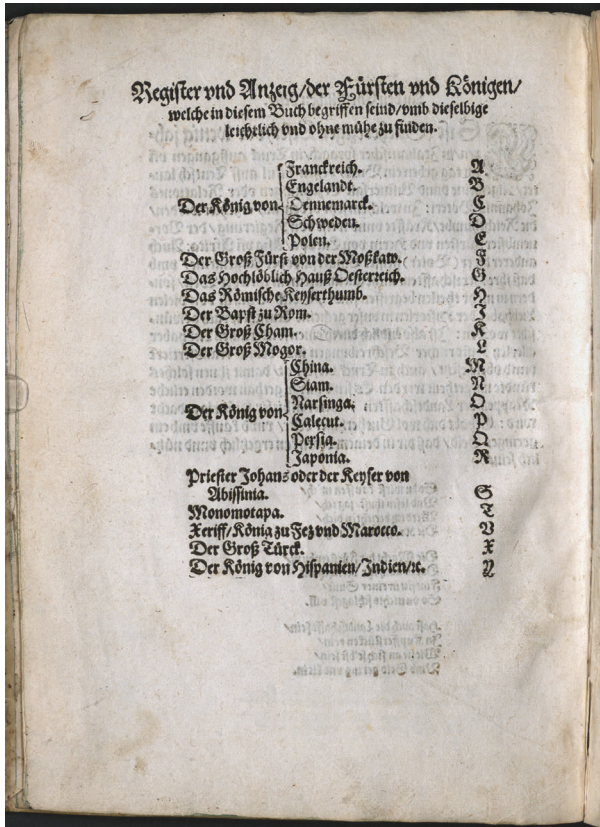 Register vnd Anzeig/der Fürsten vnd Königen/
welche in diesem Buch begriffen seind/vmb dieselbige
leichtlich vnd ohne mühe zu finden.
Der König von
Franckreich. A
Engelandt. B
Dennemarck. C
Schweden. D
Polen. E
Der Groß Fürst von der Moßkaw. F
Das Hochlöblich Hauß Oesterreich. G
Das Römische Keyserthumb. H
Der Bapst zu Rom. I
Der Groß Cham. K
Der Groß Mogor. L
Der König von
China. M
Siam. N
Narsinga. O
Calecut. P
Persia. Q
Japonia. R
Priester Johans oder der Keyser von
Abissinia. S
Monomotapa. T
Xeriff/König zu Fez vnd Marocco. V
Der Groß Türck. X
Der König von Hispanien/Indien/ꝛc. Y